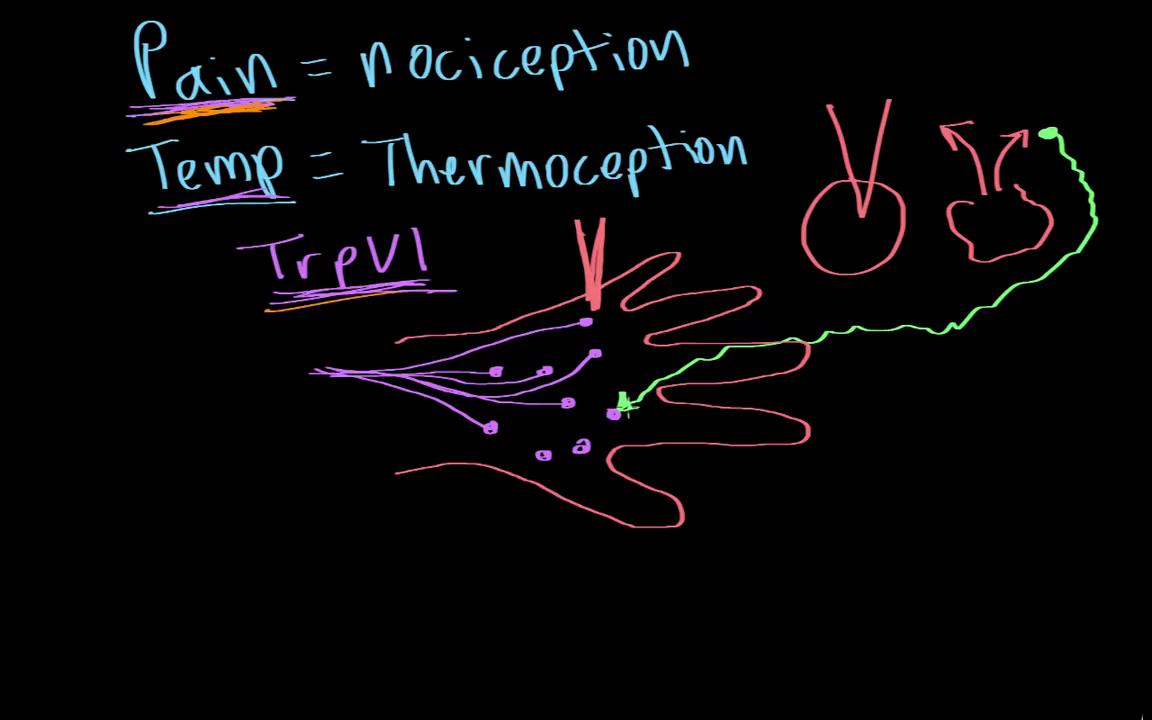 Pain = nociception
Temp = Thermoception
TrpV1